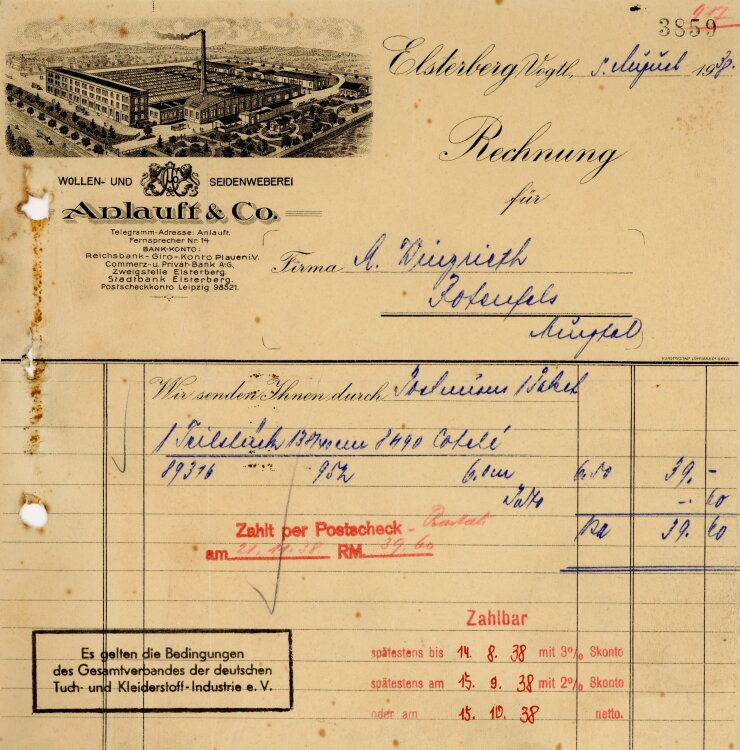 917
3859
Elsterberg Vogtl., 5. August 1938.
Rechnung
für
WOLLEN- UND SEIDENWEBEREI
Anlauft & Co.
Telegramm-Adresse: Anlauft.
Fernsprecher Nr. 14
BANK-KONTO:
Reichsbank-Giro-Konto Plauen i.V.
Commerz- u. Privat-Bank A.G.,
Zweigstelle Elsterberg.
Stadtbank Elsterberg.
Postscheckkonto Leipzig 98521.
Firma A.
Rotenfels
Murgtal
Wir senden Ihnen durch 1 Paket
1 Teilstück 130 cm 8490 Cotelé
89316 95h 6.0m 6.50 39.-
Porto -.60
39. 60
Zahlt per Postscheck -
am 21.11.38 RM. 39.60
Zahlbar
spätestens bis 14. 8. 38 mit 3% Skonto
spätestens am 15. 9. 38 mit 2% Skonto
oder am 15. 10. 38 netto.
Es gelten die Bedingungen
des Gesamtverbandes der deutschen
Tuch- und Kleiderstoff-Industrie e. V.